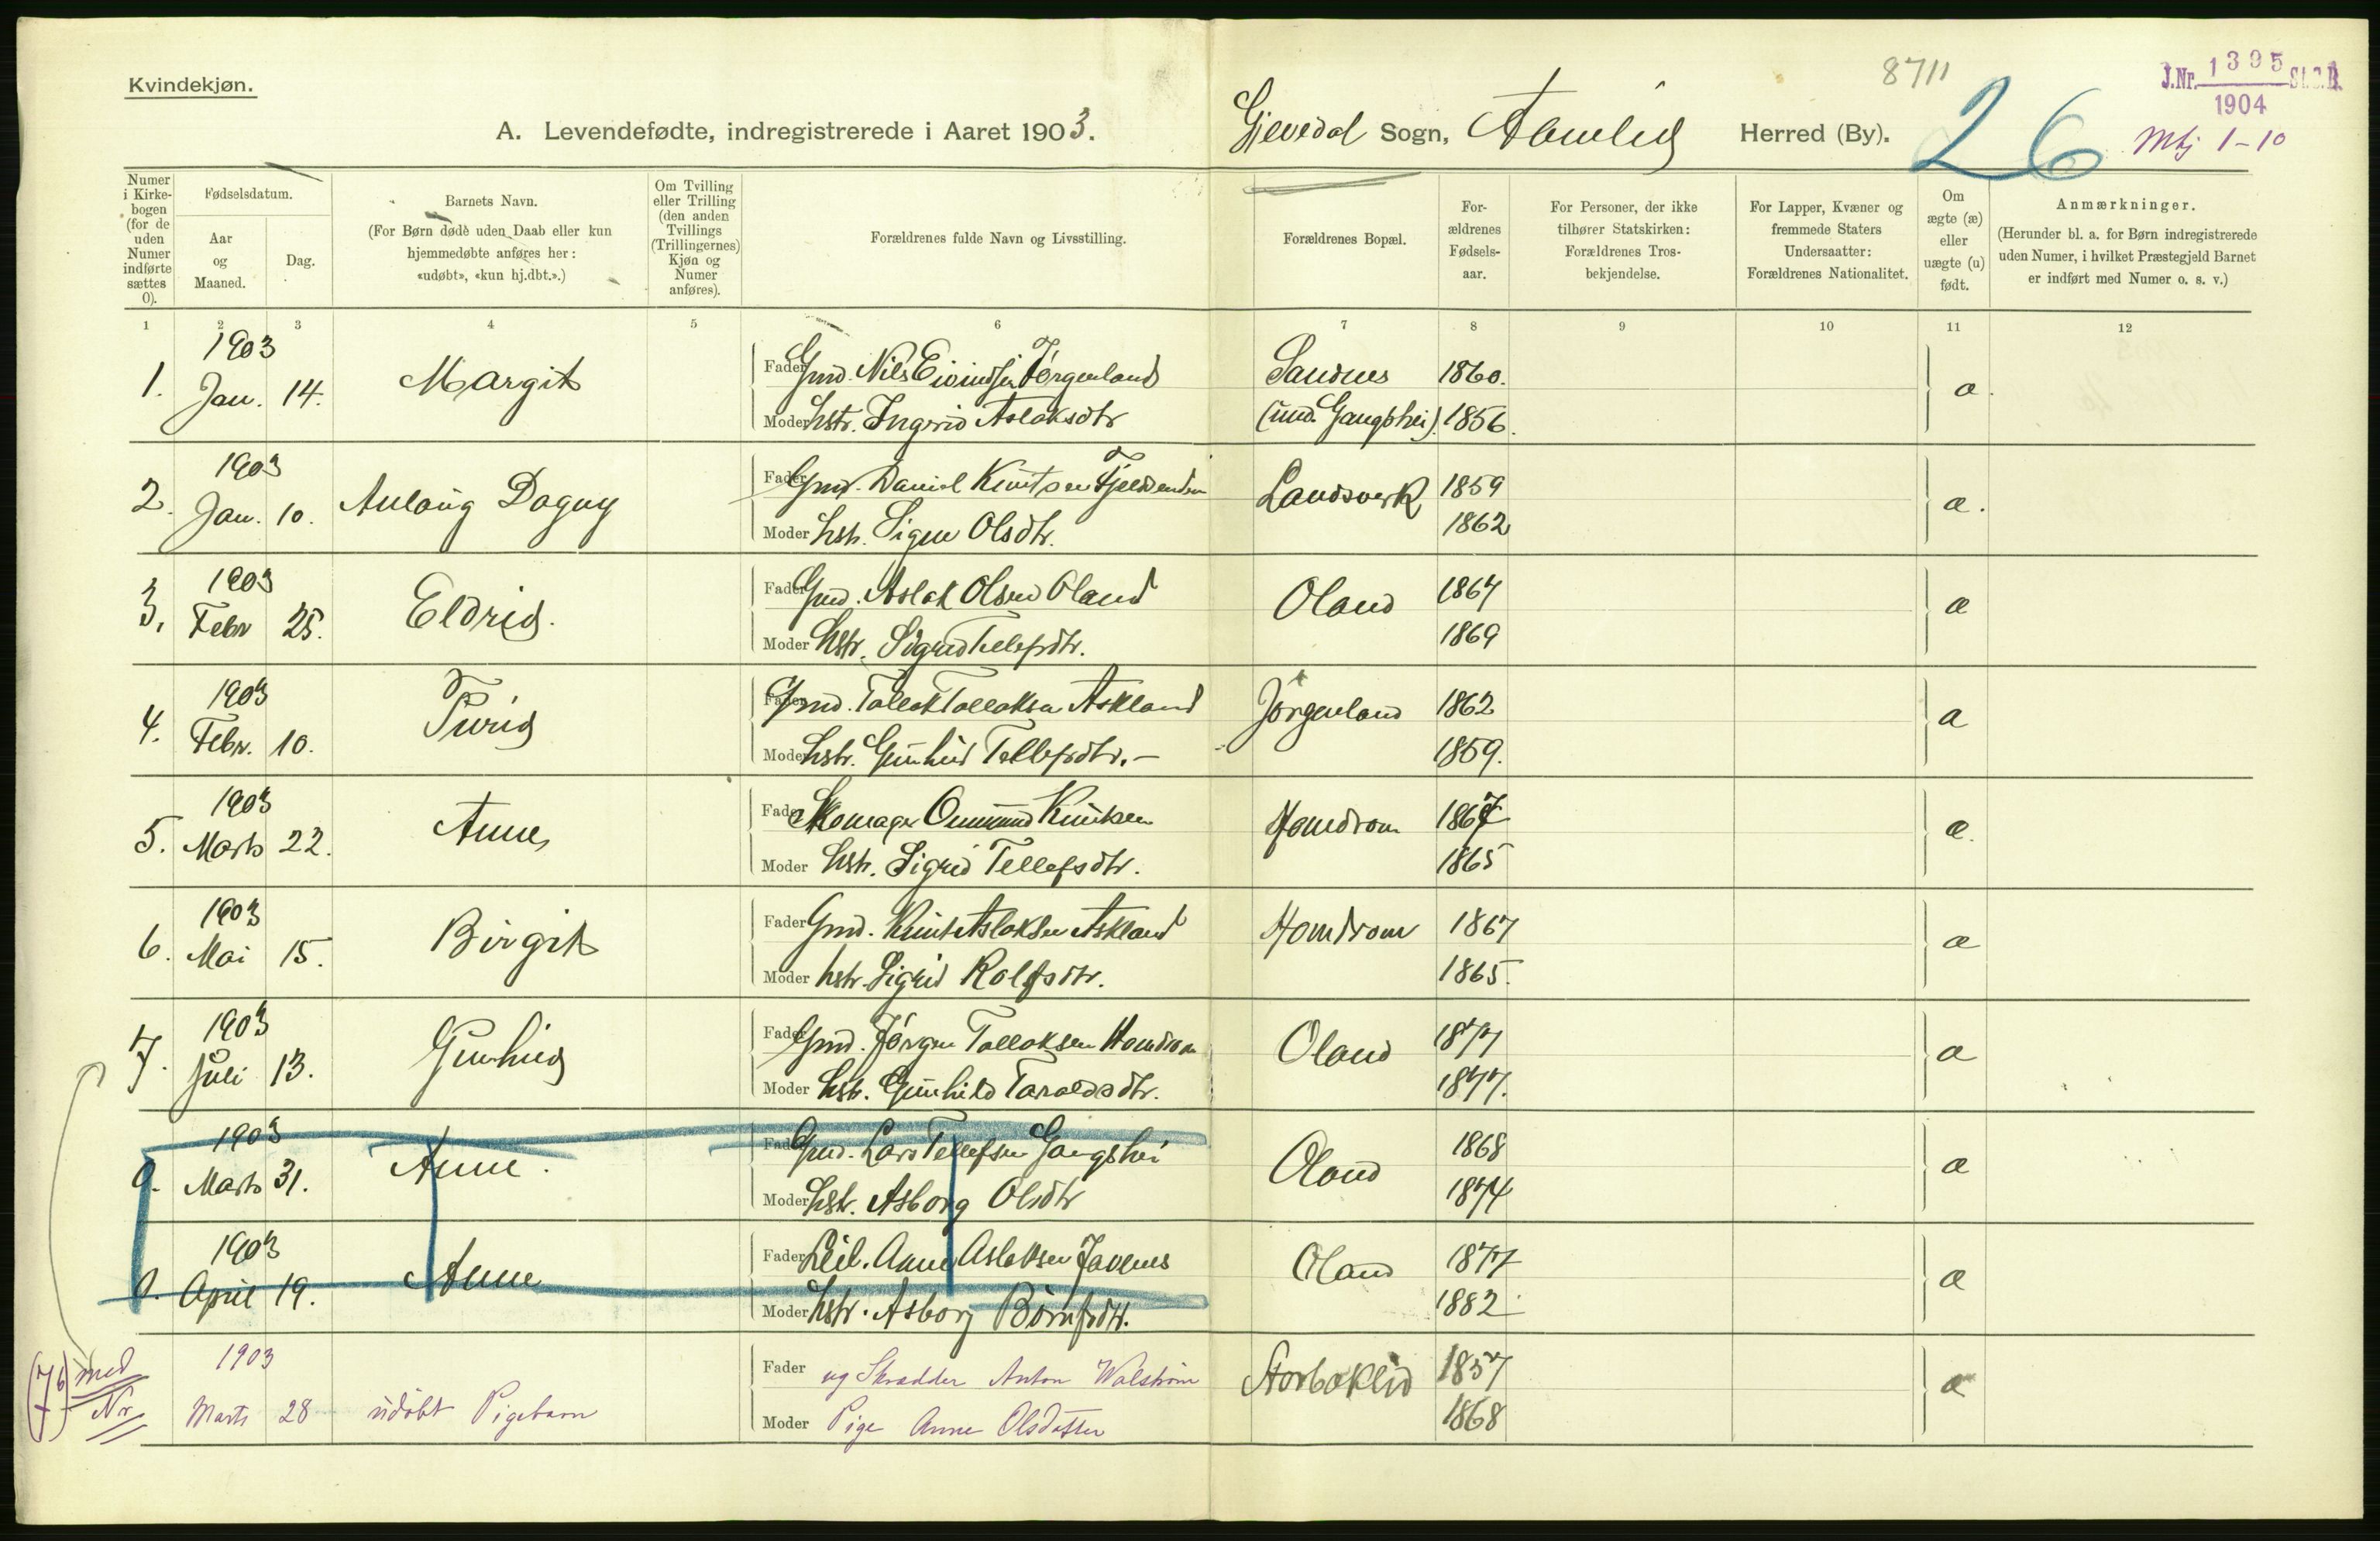 Kvindekjøn.
8711
J.Nr. 1395 St.C.B.
1904
A. Levendefødte, indregistrerede i Aaret 1903.
Gjevedal Sogn, Aamlid Herred (By).
26
1-10
Numer i Kirkebogen (for de uden Numer indførte sættes 0).
Fødselsdatum.
Aar og Maaned.
Dag.
Barnets Navn.
(For Børn døde uden Daab eller kun hjemmedøbte anføres her: «udøbt», «kun hj.dbt.».)
Om Tvilling eller Trilling (den anden Tvillings (Trillingernes) Kjøn og Numer anføres).
Forældrenes fulde Navn og Livsstilling.
Forældrenes Bopæl.
For-ældrenes Fødsels-aar.
For Personer, der ikke tilhører Statskirken: Forældrenes Tros-bekjendelse.
For Lapper, Kvæner og fremmede Staters Undersaatter: Forældrenes Nationalitet.
Om ægte (æ) eller uægte (u) født.
Anmærkninger.
(Herunder bl. a. for Børn indregistrerede uden Numer, i hvilket Præstegjeld Barnet er indført med Numer o. s. v.)
1 2 3 4 5 6 7 8 9 10 11 12
1903
1. Jan. 14. Margit
Fader Gmd. Nils Eivindsen Jørgenland Sandnes 1860. æ.
Moder hstr. Ingerid Aslaksdtr (und. Gangshei). 1856.
1903
2. Jan. 10. Aulaug Dagny
Fader Gmd. Daniel Knutsen Landsverk 1859 æ.
Moder hstr. Signe Olsdtr. 1862
1903
3. Febr 25. Eldrid.
Fader Gmd. Aslak Olsen Oland Oland 1864 æ
Moder hstr. Sigrid Tellefsdtr. 1869
1903
4. Febr. 10. Turid
Fader Gmd. Tallak Tallaksen Askland Jørgenland 1862 æ
Moder hstr. Gunhild Tellefsdtr. - 1859.
1903
5. Marts 22. Anne
Fader Skomager Ommund Knutsen Homdrom 1867 æ.
Moder hstr. Sigrid Tellefsdtr. 1865
1903
6. Mai 15. Birgit
Fader Gmd. Knut Aslaksen Askland Homdrom 1867 æ
Moder hstr. Sigrid Rolfsdtr. 1865.
1903
7. Juli 13. Gunhild
Fader Gmd. Jørgen Tallaksen Homdrom Oland 1877 æ
Moder hstr. Gunhild Taraldsdtr. 1877.
1903
0. Marts 31. Anne.
Fader Gmd. Lars Tellefsen Gangshei Oland 1868 æ
Moder hstr. Asborg Olsdtr 1874
1903
0. April 19. Anne
Fader Leil. Aanne Aslaksen Oland 1877 æ
Moder hstr. Asborg 1882
(7b) med Nr.
1903
Marts 28 udøbt Pigebarn
Fader ug Skrædder Anton Walstrøm Storboklid 1857 æ
Moder Pige Anne Olsdatter 1868